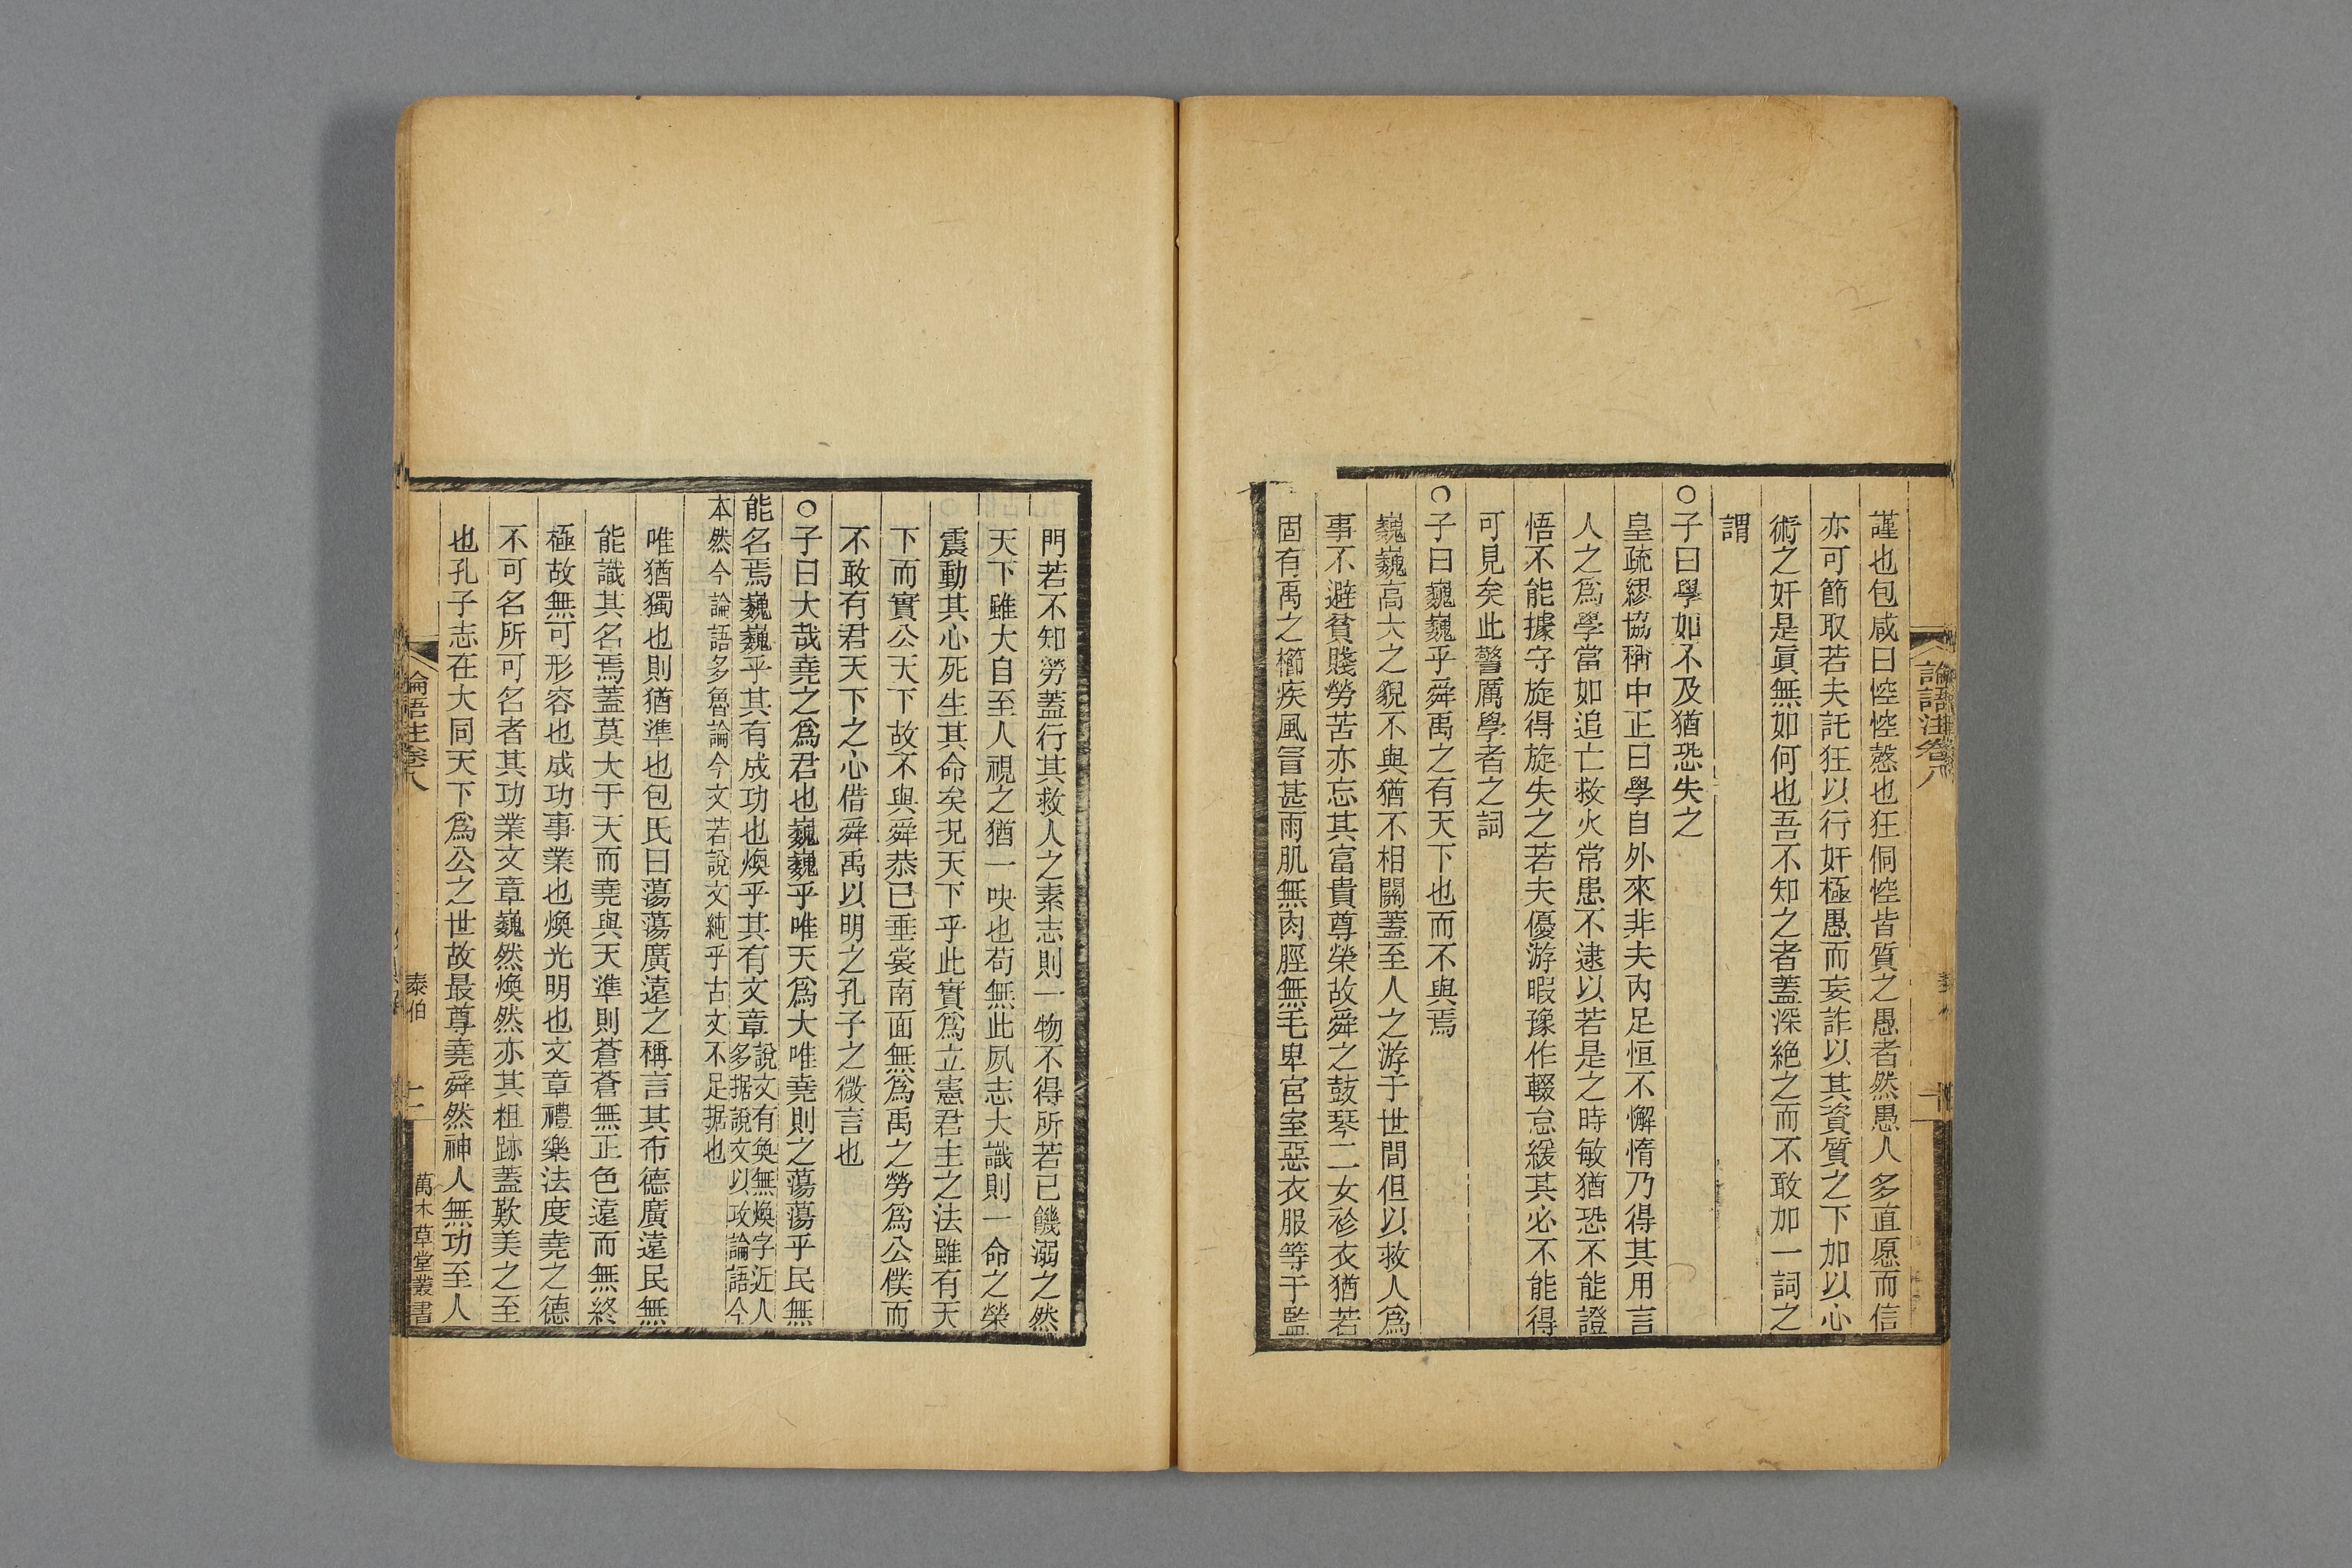 論語注卷八
謹也包咸曰悾悾慤也狂侗悾皆質之愚者然愚人多直愿而信
亦可節取若夫託狂以行奸極愚而妄詐以其資質之下加以心
術之奸是眞無如何也吾不知之者蓋深絶之而不敢加一詞之
謂
○子曰學如不及猶恐失之
皇疏繆協稱中正曰學自外來非夫內足恒不懈惰乃得其用言
人之爲學當如追亡救火常患不逮以若是之時敏猶恐不能證
悟不能據守旋得旋失之若夫優游暇豫作輟怠緩其必不能得
可見矣此警厲學者之詞
○子曰巍巍乎舜禹之有天下也而不與焉
巍巍高大之貌不與猶不相關蓋至人之游于世間但以救人爲
事不避貧賤勞苦亦忘其富貴尊榮故舜之鼓琴二女袗衣猶若
固有禹之櫛疾風冒甚雨肌無肉脛無毛卑宮室惡衣服等于監
門若不知勞蓋行其救人之素志則一物不得所若已饑溺之然
天下雖大自至人視之猶一吷也苟無此夙志大識則一命之榮
震動其心死生其命矣況天下乎此實爲立憲君主之法雖有天
下而實公天下故不與舜恭已垂裳南面無爲禹之勞爲公僕而
不敢有君天下之心借舜禹以明之孔子之微言也
○子曰大哉堯之爲君也巍巍乎唯天爲大唯堯則之蕩蕩乎民無
能名焉巍巍乎其有成功也煥乎其有文章說文有奐無煥字近人
多据說文以攻論語今
本然今論語多魯論今文若說文純乎古文不足据也
唯猶獨也則猶準也包氏曰蕩蕩廣遠之稱言其布德廣遠民無
能識其名焉蓋莫大于天而堯與天準則蒼蒼無正色遠而無終
極故無可形容也成功事業也煥光明也文章禮樂法度堯之德
不可名所可名者其功業文章巍然煥然亦其粗跡蓋歎美之至
也孔子志在大同天下爲公之世故最尊堯舜然神人無功至人
論語注卷八
泰伯
二
萬木草堂叢書